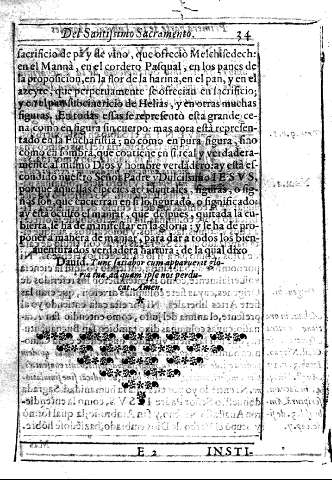 Del Santissimo Sacramento. 34
sacrificio de pã y de vino, que ofrecio Melchisedech:
en el Manná, en el cordero Pasqual, en los panes de
la proposicion, en la flor de la harina, en el pan, y en el
azeyte, que perpetuamente se ofrecian en sacrificio;
y en el pan subcinericio de Helias, y en otras muchas
figuras. En todas estas se representó esta grande ce-
na como en figura sin cuerpo: mas aora está represen-
tado en la Eucharistia, no como en pura figura, sino
como en que contiene en si real y verdadera-
mente al mismo Dios y hombre verdadero: ay está es-
condido nuestro Señor Padre y Dulcissimo IESVS,
porque aquellas especies accidentales, figuras, o sig-
nos son, que encierran en si lo figurado, o significado:
ay está oculto el manjar, que despues, quitada la cu-
bierta, se ha de manifestar en la gloria: y se ha de pro-
poner a manera de manjar, que dará a todos los bien-
aventurados verdadera hartura; de la qual dixo
Dauid. Tunc satiabor cum apparuerit glo-
ria tua, ad quam ipse nos perdu-
cat. Amen.
E 2 INSTI-